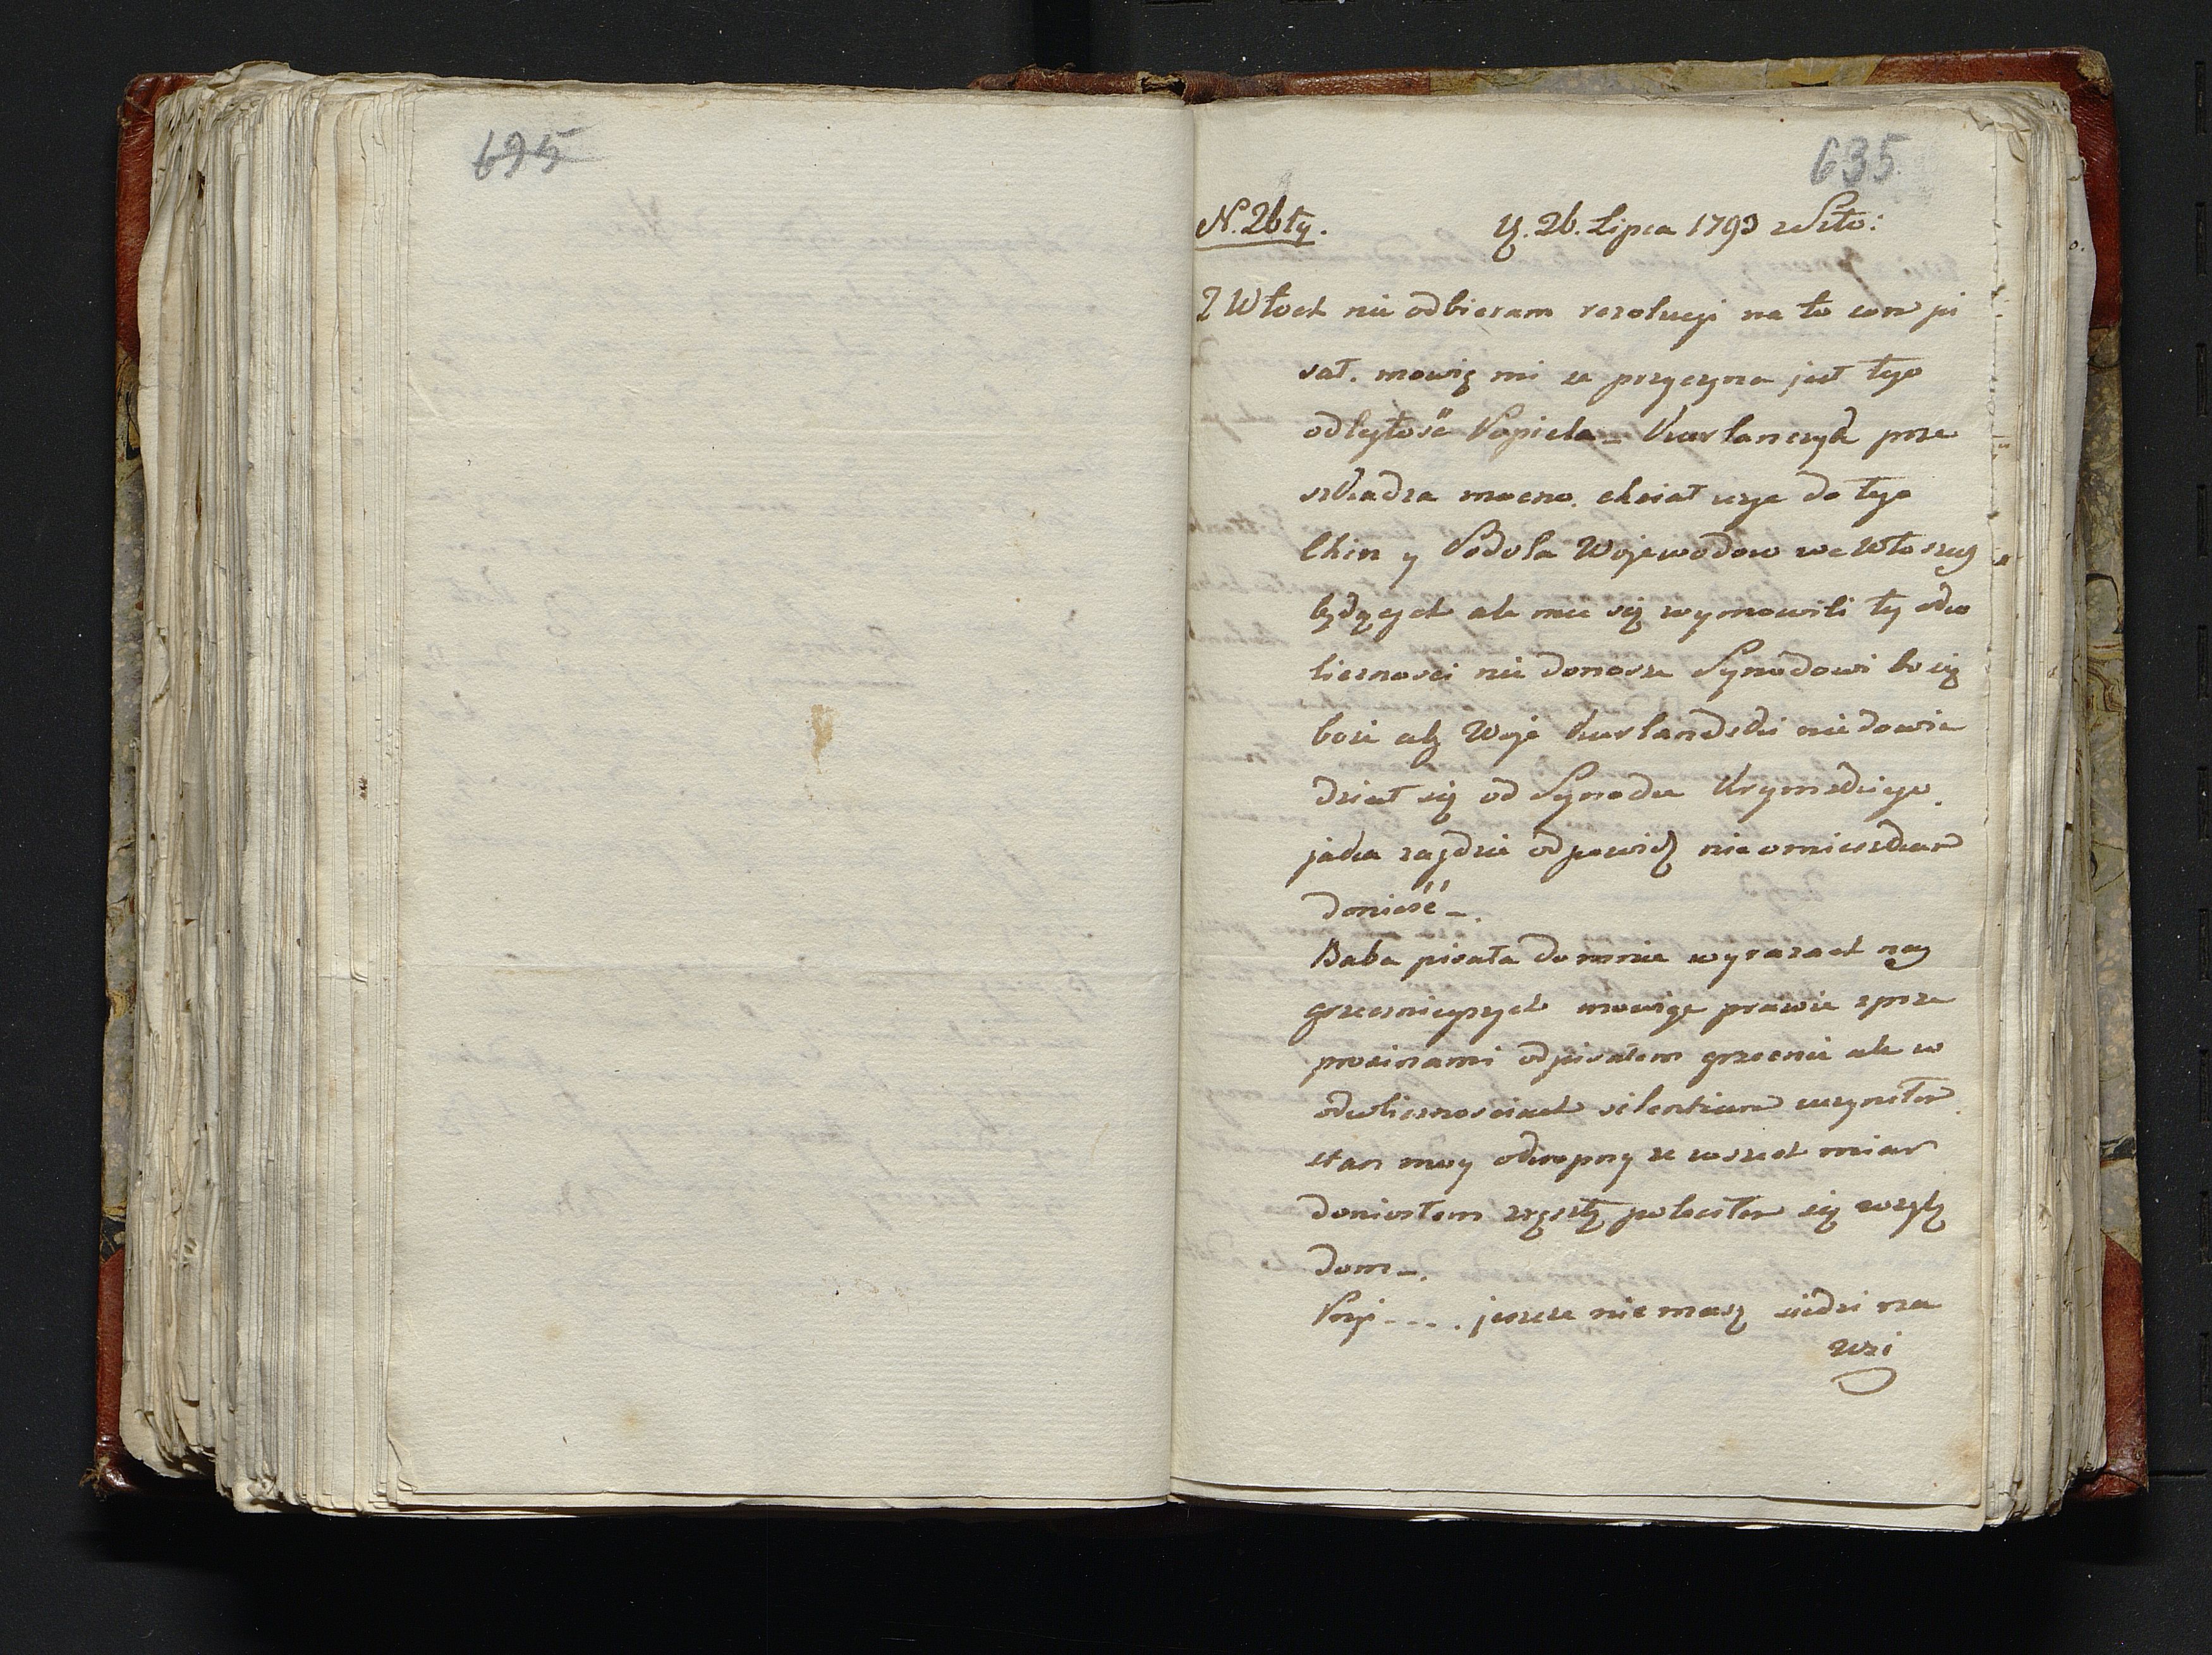 695
635
N. 26ty. D. 26. Lipca 1793 z Szto:
Z Włoch nie odbieram rezolucji na to com pi
sał. mowią mi ze przyczyna jest tego
odległość Papieża - Kurlanczyk prze
szkadza mocno. chciał uzyc do tego
Chin y Podola Wojewodow we Włoszech
będących ale mu się wymowili tę oko
liczności nie donoszę Synodowi bo się
boię aby Woje Kurlandzki nie dowie
dział się od Synodu Krymskiego.
jaka zajdzie odpowiedz nieomieszkam
donieść -.
Baba pisała do mnie w wyrazach nay
grzecznieyszych mowiąc prawie z prze
prosinami odpisałem grzecznie ale w
okolicznosciach silentium uczyniłem.
stan moy okropny ze wszech miar
doniosłem zresztą poleciłem się wzglę
dom -.
Przyj - - - . jeszcze nie masz siedzi na
wsi